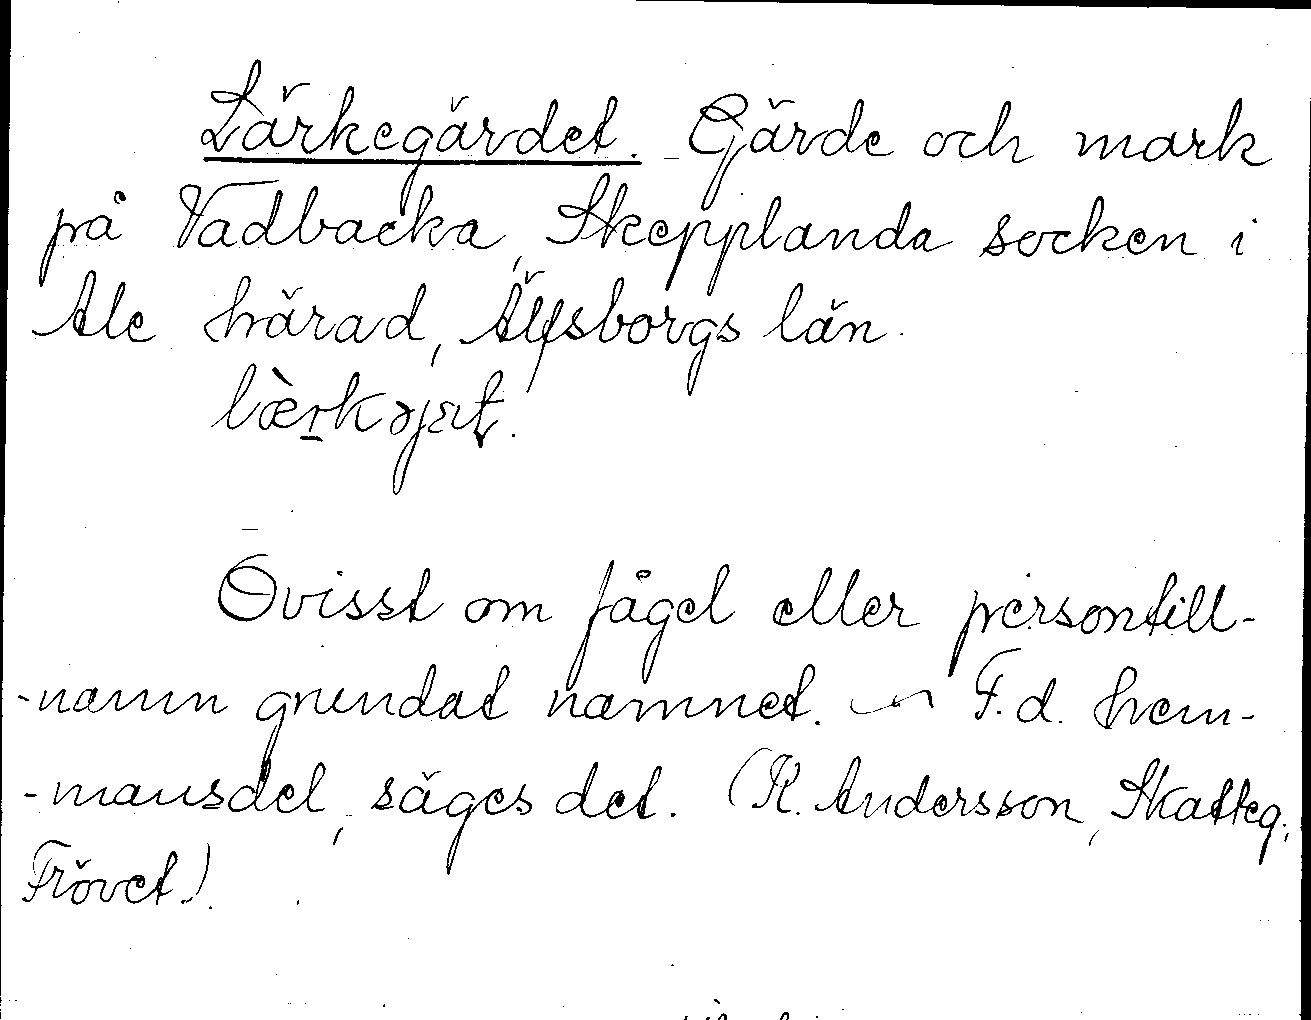 Lärkegärdet. Gärde och mark
på Vadbacka, Skepplanda socken i
Ale härad, Älfsborgs län.
lærkəjæt.
Ovisst om fågel eller persontill-
-namn grundat namnet. — F.d. hem-
-mansdel, säges det. (K. Andersson, Skatteg.,
Frövet).